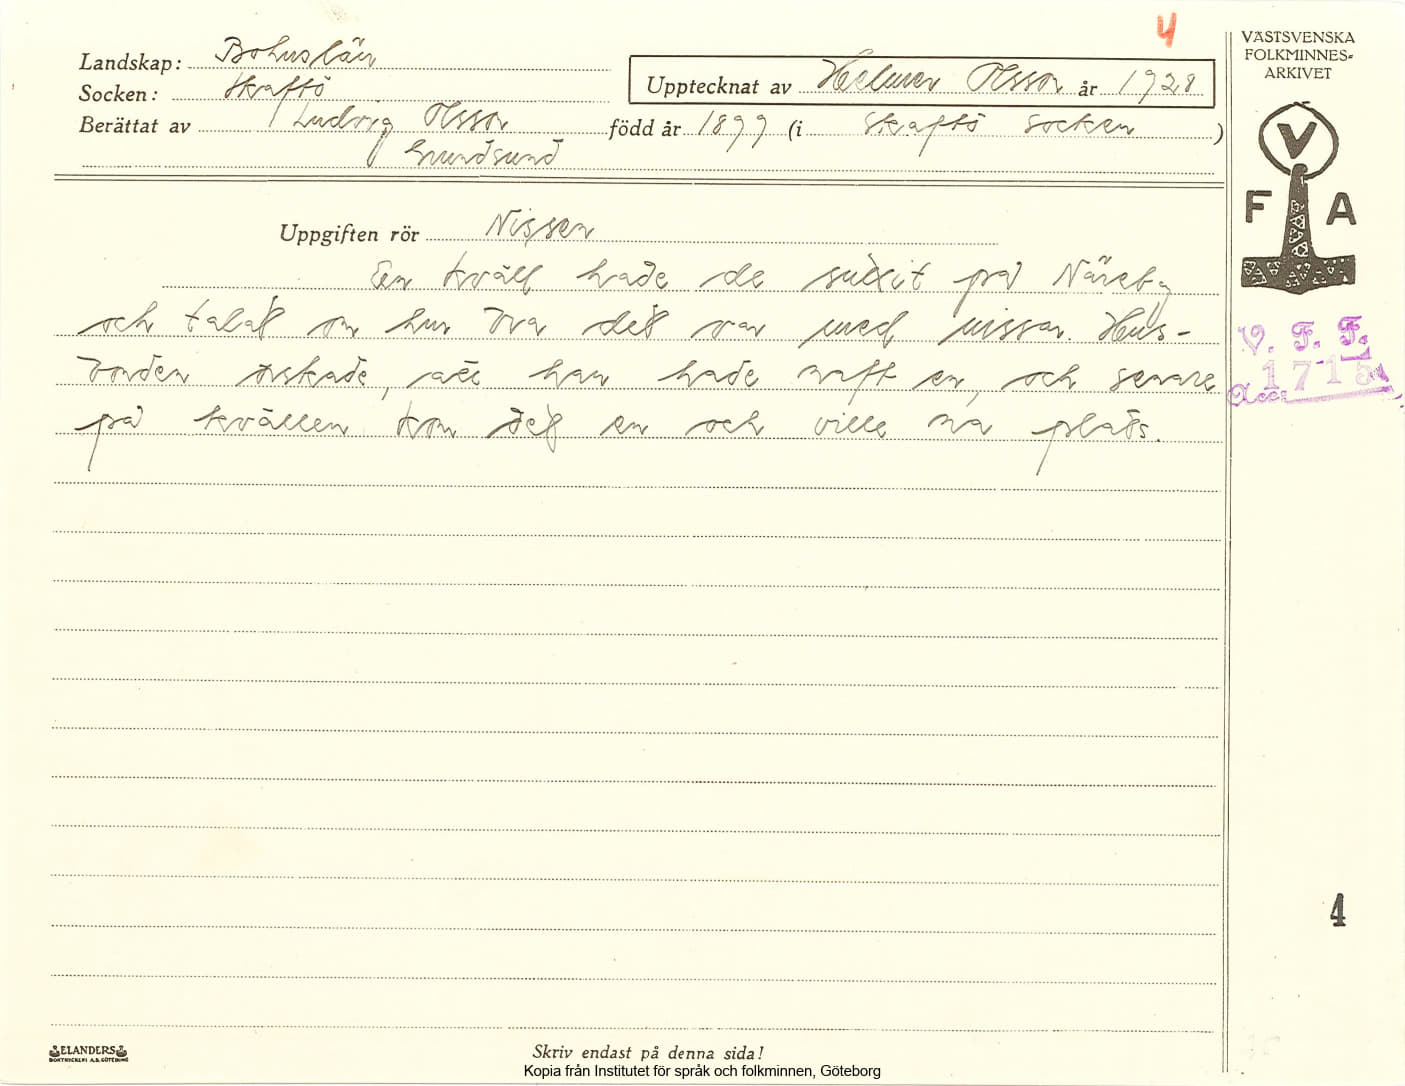 4
Landskap: Bohuslän
Socken: Skaftö
Upptecknat av Helmer Olsson år 1928
Berättat av Ludvig Olsson född år 1899 (i Skaftö socken)
Grundsund
Uppgiften rör Nissen
En kväll hade de suttit på Näreby
och talat om hur bra det var med nissar. Hus-
bonden önskade, att han hade haft en, och senare
på kvällen kom det en och ville ha plats.
VÄSTSVENSKA
FOLKMINNES=
ARKIVET
V
F A
V. F. F.
Acc: 1715
4
ELANDERS
BOKTRYCKERI A.B. GÖTEBORG
Skriv endast på denna sida!
Kopia från Institutet för språk och folkminnen, Göteborg